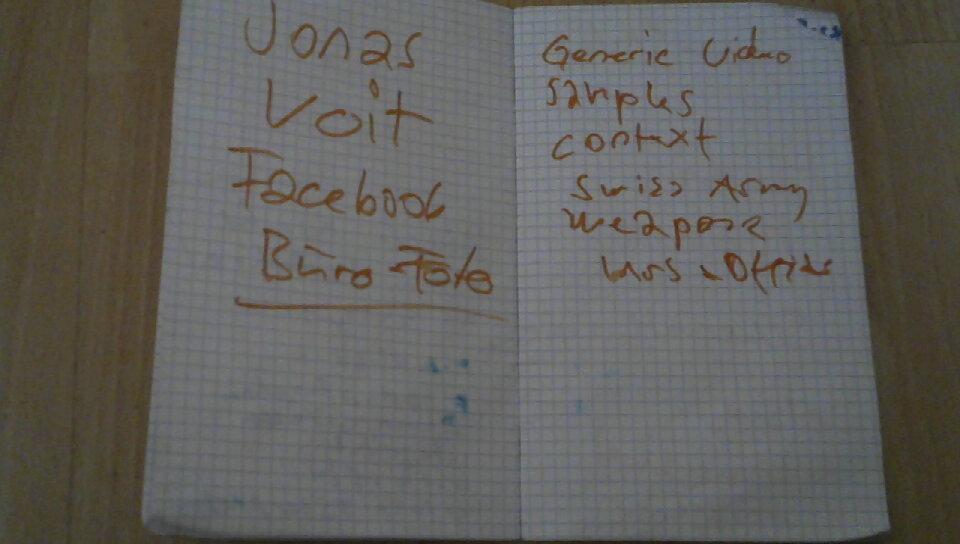 Jonas
Voit
Facebook
Büro-Foto
Generic Video
samples
context
Swiss Army